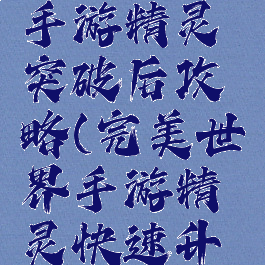 手游精灵
突破后攻
略(完美世
界手游精
灵快速升